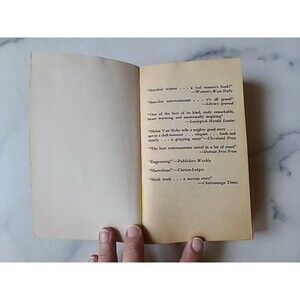 "Another winner . . . a real woman's book!"
—Women's Wear Daily
"Sure-fire entertainment . . . it's all grand"
—Library Journal
"One of the best of its kind, truly remarkable,
heart warming and emotionally inspiring"
—Lexington Herald Leader
"Helen Van Slyke tells a mighty good story . . .
never a dull moment . . . elegant . . . fresh and
timely . . . a gripping story"—Cleveland Press
"The best contemporary novel in a lot of years"
—Detroit Free Press
"Engrossing!"—Publishers Weekly
"Marvelous!"—Clarion-Ledger
"Slick work . . . a success story"
—Chattanooga Times